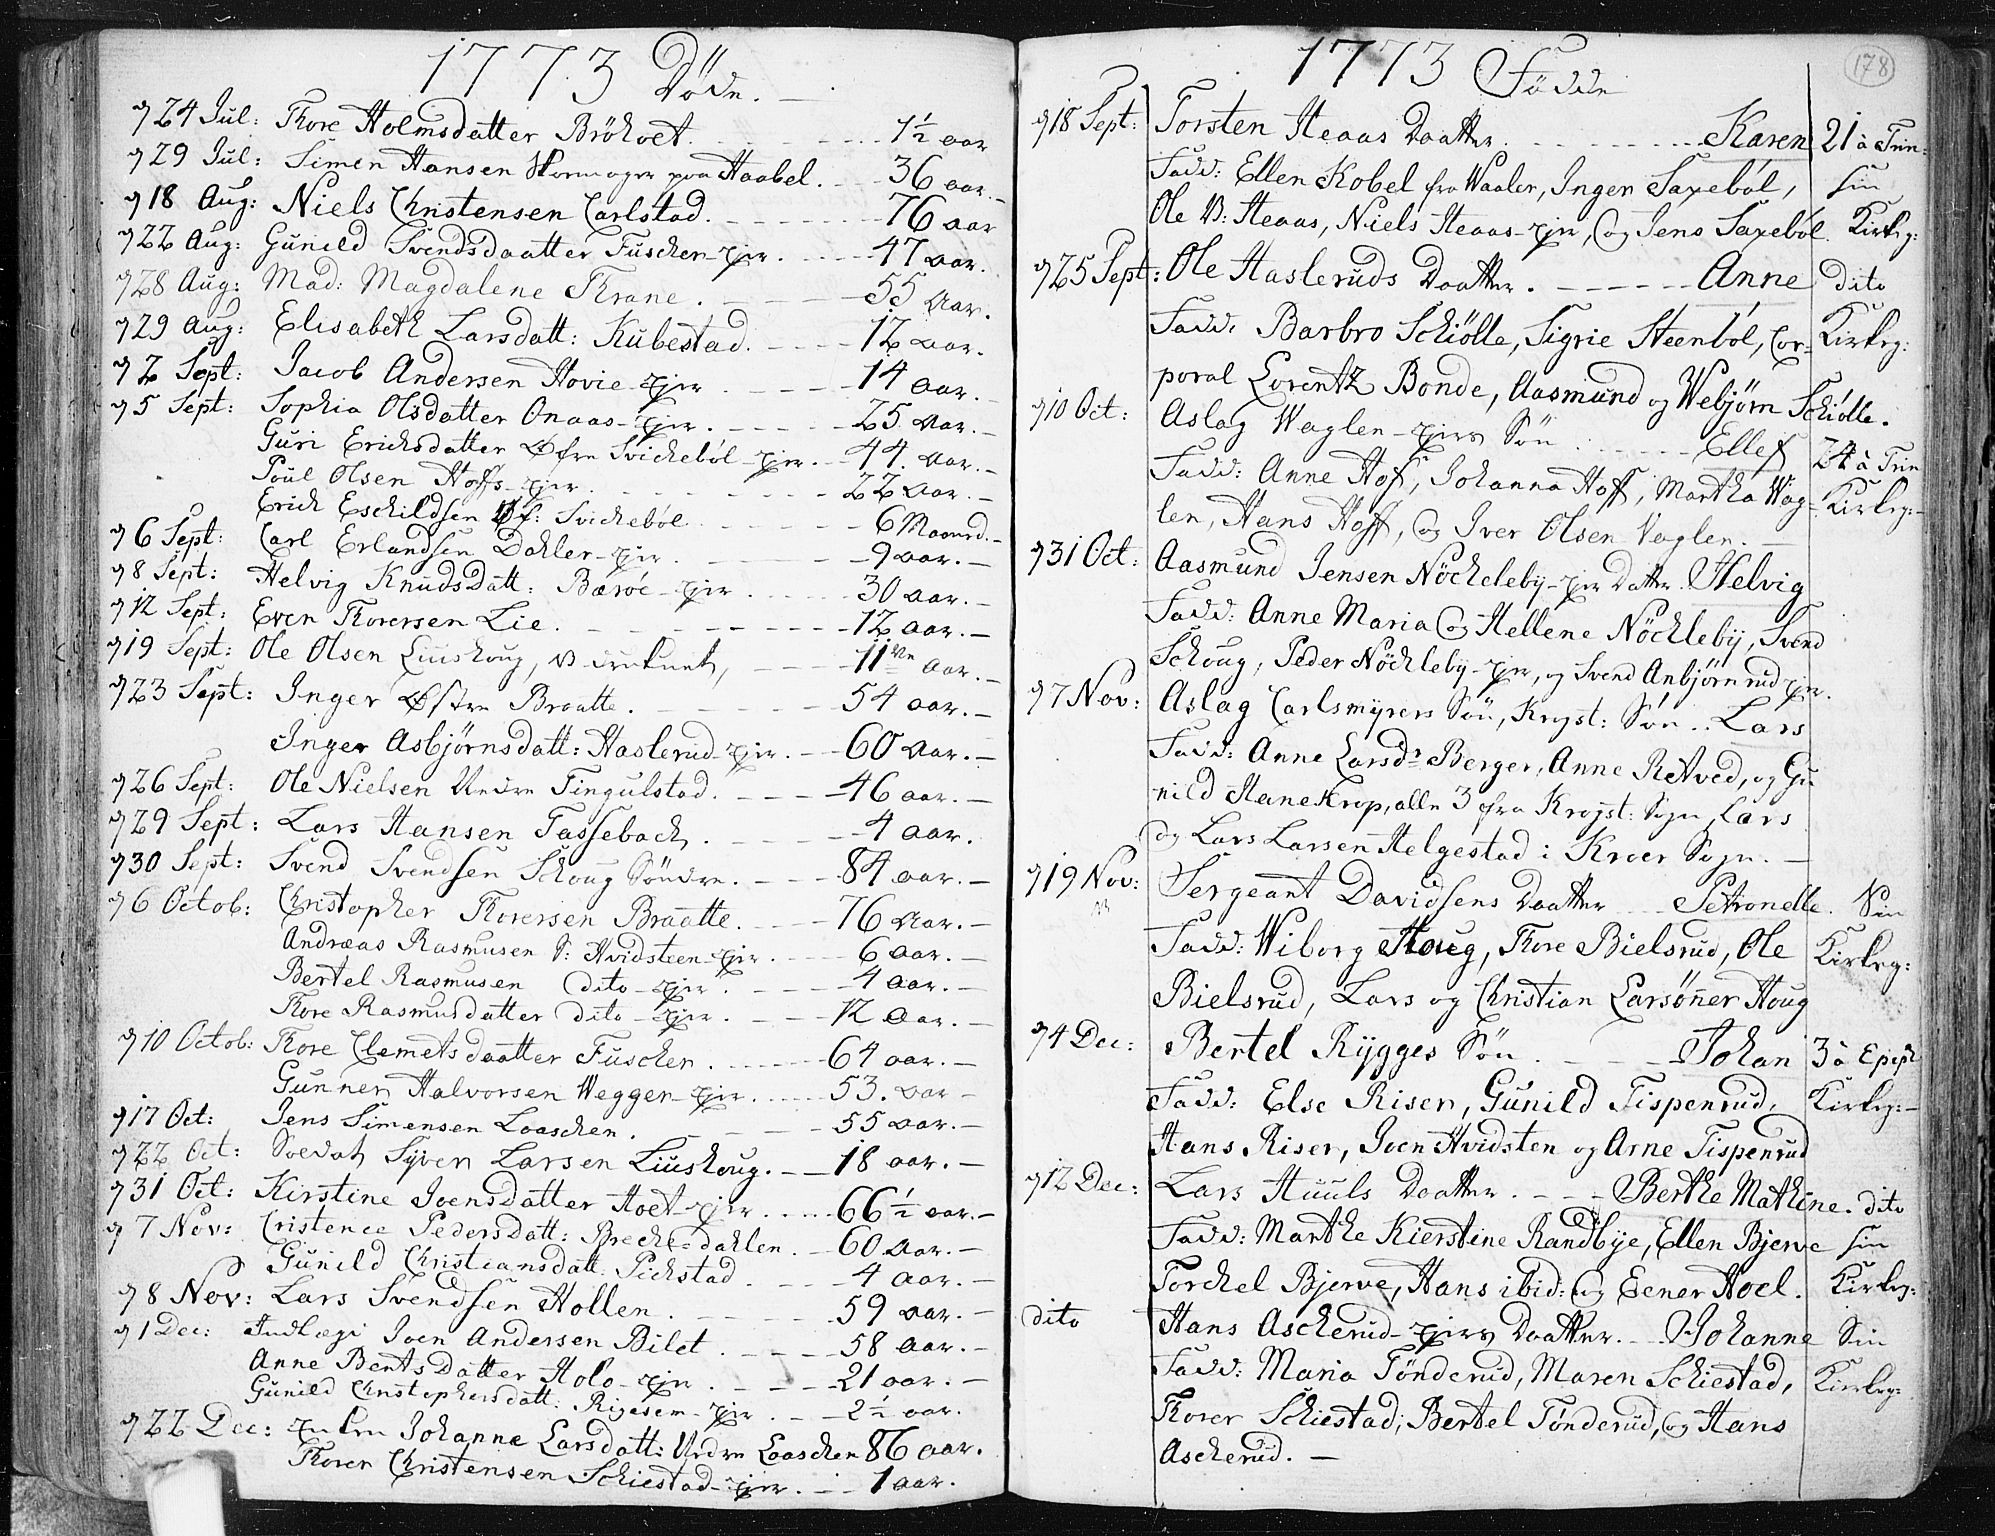 1773 Døde.
d 24 Jul: Thore Holmsdatter Bröhoet. 1½ aar
d 29 Jul: Simen Hansen paa Haabel. 36 aar.
d 18 Aug: Niels Christensen Carlstad. 76 aar
d 22 Aug: Gunild Svendsdaatter Fuscher-ejer. 47 aar.
d 28 Aug: Mad: Magdalene Thrane. 55 Aar.
d 29 Aug: Elisabeth Larsdatt: Kubestad. 12 aar.
d 2 Sept: Jacob Andersen Hovie-ejer 14 aar.
d 5 Sept: Sophia Olsdatter Onaas-ejer. 25 Aar.
Guri Erichsdatter Øfre Svichebøl-ejer. 44. Aar.
Poul Olsen Hoffs-ejer. 22 Aar.
Erich Eschildsen Øf: Svichebøl 6 Maaned.
d 6 Sept: Carl Erlandsen Dahler-ejer. 9 aar.
d 8 Sept: Helvig KnudsDatt: Bærøe-ejer 30 aar.
d 12 Sept: Even Thorersen Lie. 12 aar.
d 19 Sept: Ole Olsen Liuskoug, 11 aar.
d 23 Sept: Inger Østre Braatte. 54 aar.
Inger Asbjørnsdatt: Haslerud-ejer. 60 Aar.
d 26 Sept: Ole Nielsen Nedre Tingulstad. 46 aar.
d 29 Sept: Lars Hansen Tassebach. 4 aar.
d 30 Sept: Svend Svendsen Schoug Söndre. 84 aar.
d 6 Octob: Christopher Thorersen Braatte. 76 Aar.
Andræas Rasmusen S: Hvidsteen-ejer 6 Aar.
Bertel Rasmusen dito-ejer. 4 aar.
Thore Rasmusdatter dito-ejer. 12 Aar.
d 10 Octob: Thore Clemetsdaatter Fuscher. 64 aar.
Gunner Halvorsen Wegger-ejer. 53. aar
d 17 Oct: Jens Simensen Laaschen. 55 aar.
d 22 Oct: Soldat Syver Larsen Liuskoug. 18 aar.
d 31 Oct: Kirstine Joensdatter Hoet-ejer 66½ aar.
d 7 Nov: Cristence Pedersdatt: Brechedahlen. 60 Aar.
Gunild Christiansdatt: Pichstad. 4 aar.
d 8 Nov: Lars Svendsen Hollen. 59 aar.
d 1 Dec: Indlægi Joen Andersen Bilet. 58 aar.
Anne BentsDatter Holo-ejer. 21 aar.
Gunild Christophersdatt: Rigesem-ejer. 2½ aar.
d 22 Dec: Enken Johanne Larsdatt: Nedre Laaschen 86 aar.
Thorer Christensen Schiestad-ejer. 1 aar.
1773 Födde
178
d 18 Sept: Torsten Heaas Daatter. Karen 21 à Trin:
Fadd: Ellen Kobel fra Waaler, Inger Saxebøl, Sin
Ole B: Heaas, Niels Heaas-ejer, og Jens Saxebøl. Kirkeg:
d 25 Sept: Ole Hasleruds Daatter. Anne dito
Fadd: Barbro Schiølle, Sigrie Steenbøl, Cor- Kirkeg:
poral Lorentz Bonde, Aasmund og Webjørn Schiølle.
d 10 Oct: Aslag Waglen-ejers Søn Ellef 24 à Trin
Fadd: Anne Hof, Johanna Hoff, Martha Wag- Kirkeg:
len, Hans Hoff, og Iver Olsen Vaglen.
d 31 Oct: Aasmund Jensen Nöckeleby-ejer Datter. Helvig
Fadd: Anne Maria og Hellene Nöckleby, Svend
Schoug, Peder Nöckleby-ejer, og Svend Anbjørnrud ejer.
d 7 Nov: Aslag Carlsmyrers Søn, Krogst: Søn.. Lars
Fadd: Anne Larsdr Berger, Anne Retved, og Gu
nild Hanekrop, alle 3 fra Krogst: Sogn, Lars
og Lars Larsen Helgestad i Kroer Sogn.
d 19 Nov: Sergeant Davidsens Daatter Petronelle. Sin
Fadd: Wiborg Houg, Thore Bielsrud, Ole Kirkeg:
Bielsrud, Lars og Christian Larsønner Houg
d 4 Dec: Bertel Rygges Søn. Johan 3 à Epiph
Fadd: Else Riser, Gunild Tispenrud, Kirkeg:
Hans Riser, Joen Hvidsten og Arne Tispenrud
d 12 Dec: Lars Huuls Daatter. Berthe Mathine. dito
Fadd: Marthe Kierstine Randbye, Ellen Bjerve sin
Torchel Bjerve, Hans ibid: og Eener Hoel. Kirkeg:
dito Hans Ascherud-ejers Daatter. Johanne Sin
Fadd: Maria Tønderud, Maren Schiestad, Kirkeg:
Thorer Schiestad, Bertel Tønderud, og Hans
Ascherud.